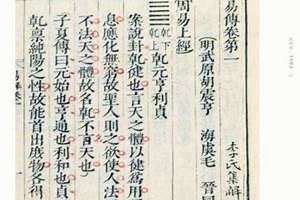 易傳卷第一
李氏集解
(明武原胡震亨 海虞毛 晉
周易上經
乾下乾上 乾元亨利貞
案說卦乾健也言天之體以健爲用
息應化無窮故聖人則之欲使人法
不法天之體故名乾不言天也
子夏傳曰元始也亨通也利和也貞
乾稟純陽之性故能首出庶物各得